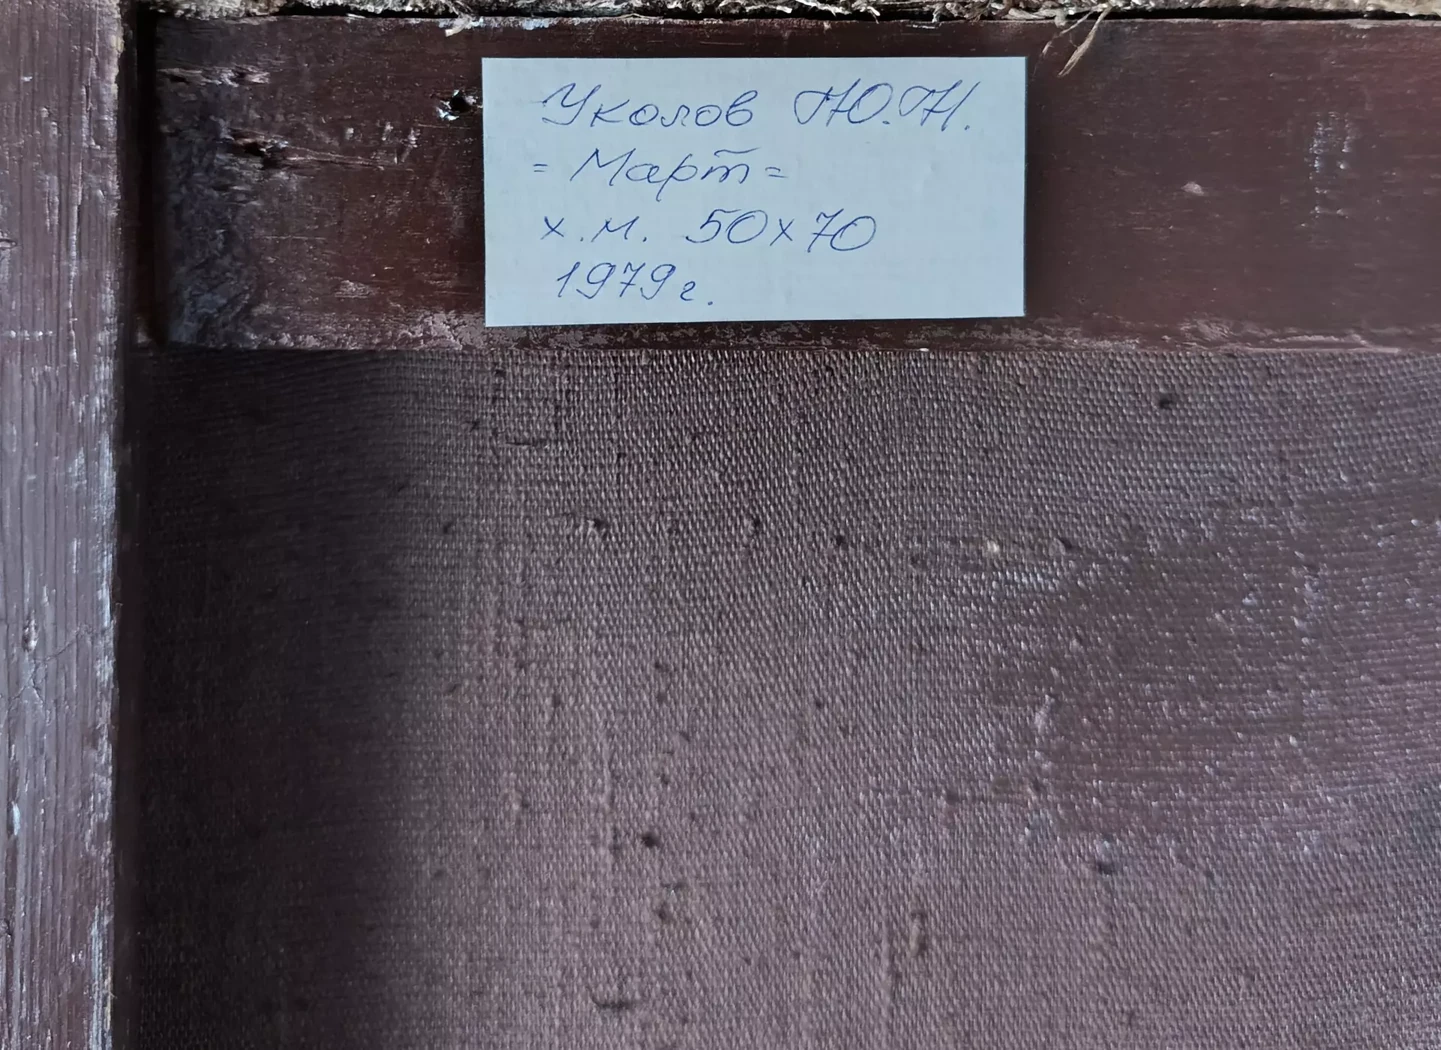 Уколов Ю.Н.
= Март =
х.м. 50х70
1979 г.